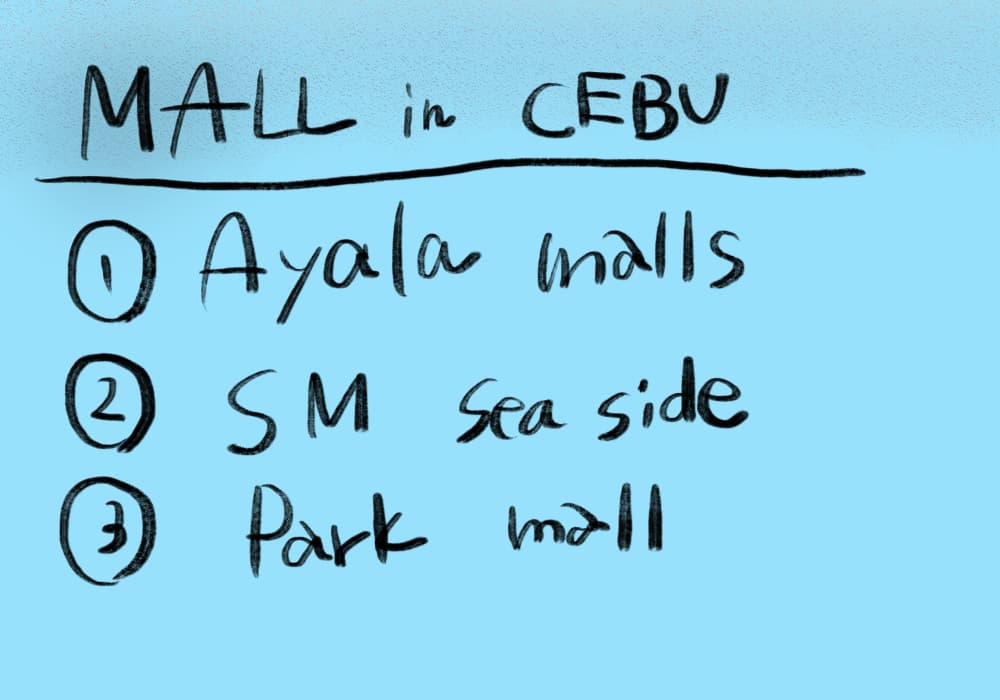 MALL in CEBU
① Ayala malls
② SM Sea side
③ Park mall